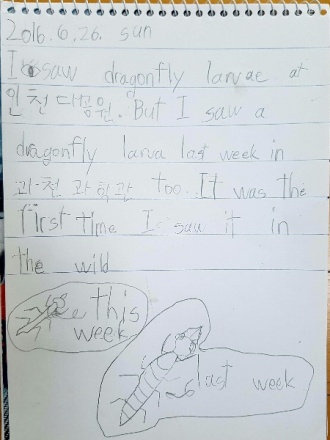 2016.6.26. sun
I saw dragonfly larvae at
인천대공원. But I saw a
dragonfly larva last week in
과천과학관 too. It was the
first time I saw it in
the wild
this
week
last week